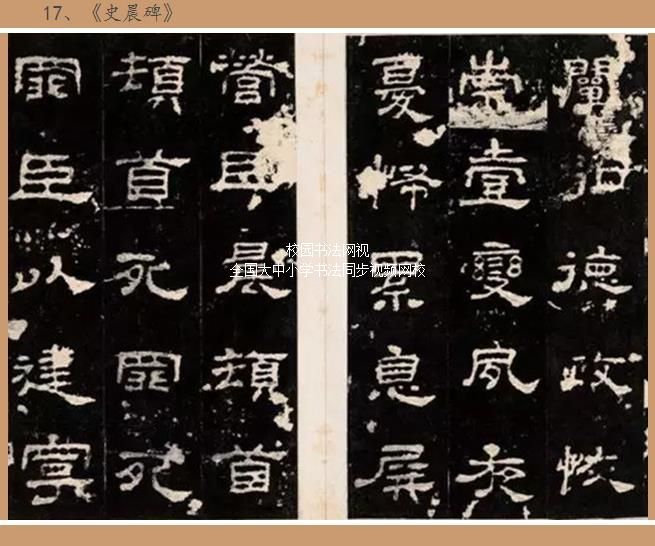 17、《史晨碑》
闡弘德政恢
崇壹變夙夜
憂怖累息屏
營臣晨頓首
頓首死罪死
罪臣以建寧
校园书法网视
全国大中小学书法同步视频网校